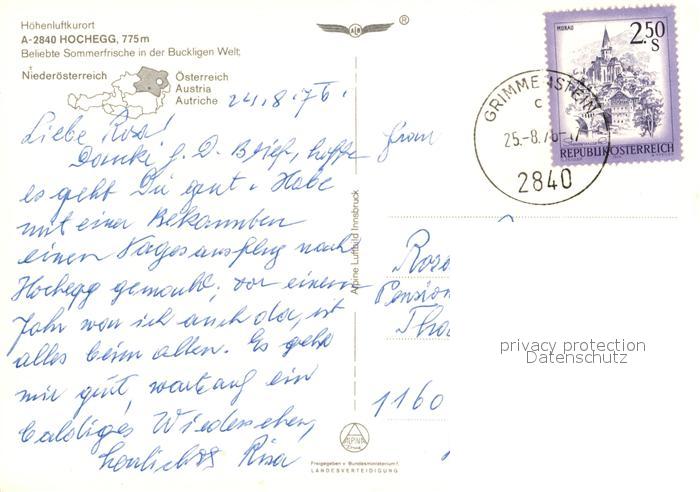 Höhenluftkurort
A-2840 HOCHEGG, 775m
Beliebte Sommerfrische in der Buckligen Welt,
Niederösterreich
Österreich
Austria
Autriche
24.8.76.
Liebe Rosa!
Danke f. D. Brief, hoffe
es geht Dir gut. Habe
mit einer Bekannten
einen Tagesausflug nach
Hochegg gemacht, vor einem
Jahr war ich auch da, ist
alles beim alten. Es geht
mir gut, wart auf ein
baldiges Wiedersehen,
herzlichst Risa
Alpine Luftbild Innsbruck
ALPINE
Freigegeben v. Bundesministerium f.
LANDESVERTEIDIGUNG
®
MURAU
2.50
S
REPUBLIK ÖSTERREICH
GRIMMENSTEIN
C
25.-8.76-17
2840
Frau
Rosa
Pension
Tha
1160
privacy protection
Datenschutz